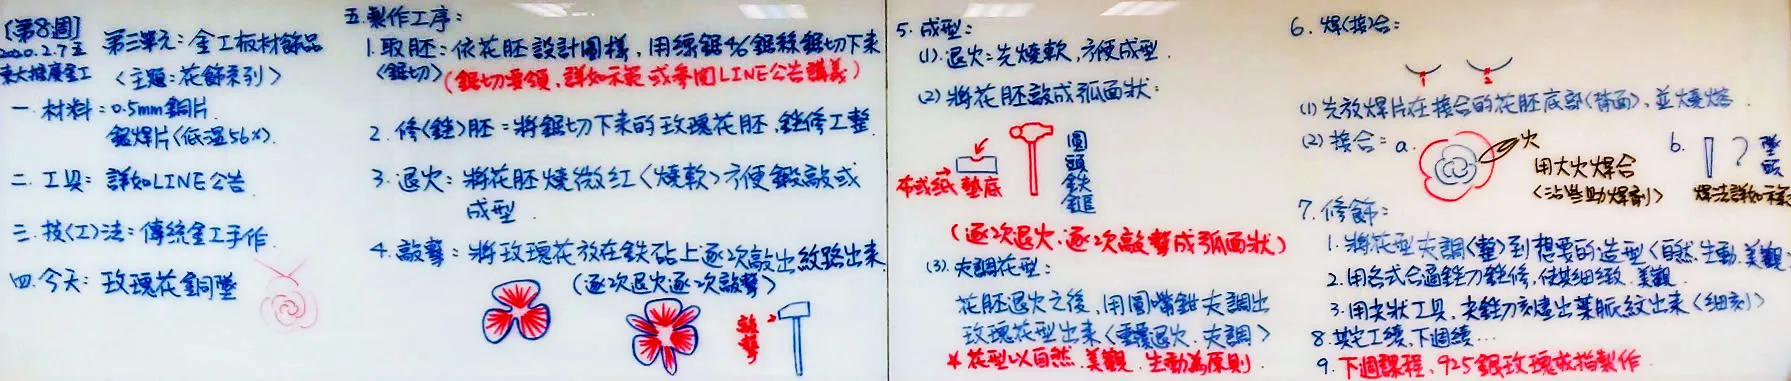 [第8週]
2020.2.7五
東大推廣金工
第三單元:金工板材飾品
〈主題:花飾系列〉
一.材料:0.5mm銅片
銀焊片(低溫56%).
二.工具:詳如LINE公告
三.技(工)法:傳統金工手作.
四.今天:玫瑰花銅墜
五.製作工序:
1.取胚:依花胚設計圖樣,用線鋸4/6鋸絲鋸切下來
〈鋸切〉(鋸切要領,詳如示範或參閱LINE公告講義)
2.修〈銼〉胚:將鋸切下來的玫瑰花胚,銼修工整.
3.退火:將花胚燒微紅〈燒軟〉方便鍛敲或
成型.
4.敲擊:將玫瑰花放在鐵砧上逐次敲出紋路出來
(逐次退火逐次敲擊)
敲擊
5.成型:
(1).退火:先燒軟,方便成型.
(2)將花胚敲成弧面狀:
布或紙→墊底
圓頭鐵鎚
(逐次退火.逐次敲擊成弧面狀)
(3).夾調花型:
花胚退火之後,用圓嘴鉗夾調出
玫瑰花型出來〈重覆退火.夾調〉
*花型以自然.美觀.生動為原則.
6.焊(接)合:
1 2
(1)先放焊片在接合的花胚底部(背面),並燒熔.
(2)接合:a.
火
用大火焊合
〈沾些助焊劑〉
b.
墜頭
焊法詳如示範
7.修飾:
1.將花型夾調〈整〉到想要的造型〈自然.生動.美觀
2.用各式合適銼刀銼修,使其細緻.美觀.
3.用尖狀工具,尖銼刀刻畫出葉脈紋出來〈細刻〉
8.其它工續,下週續…
9.下週課程,925銀玫瑰戒指製作.